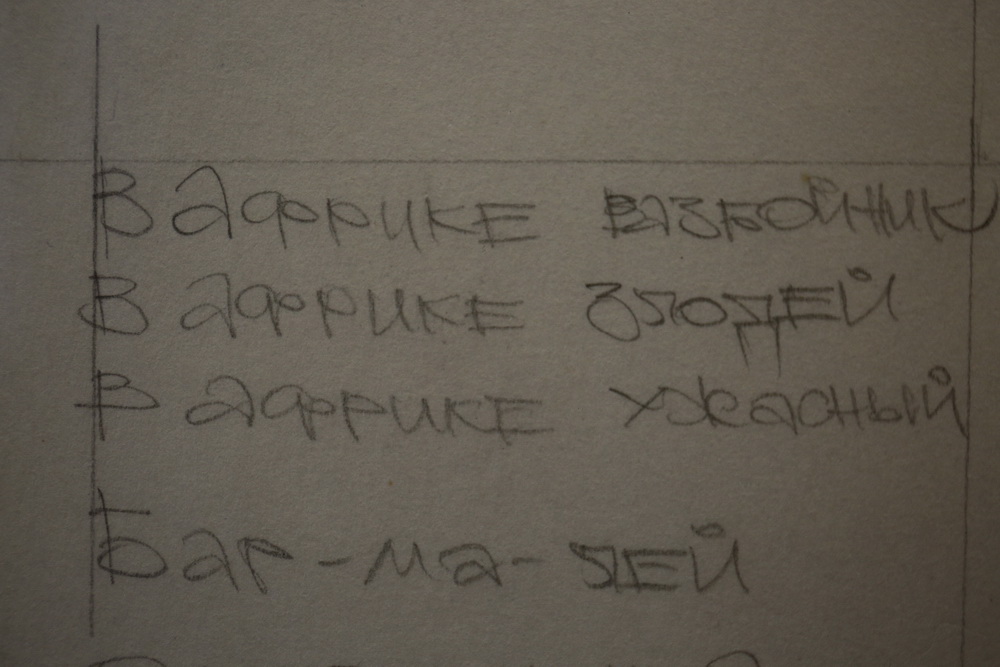 В Африке разбойник
В Африке злодей
В Африке ужасный
Бар-ма-лей